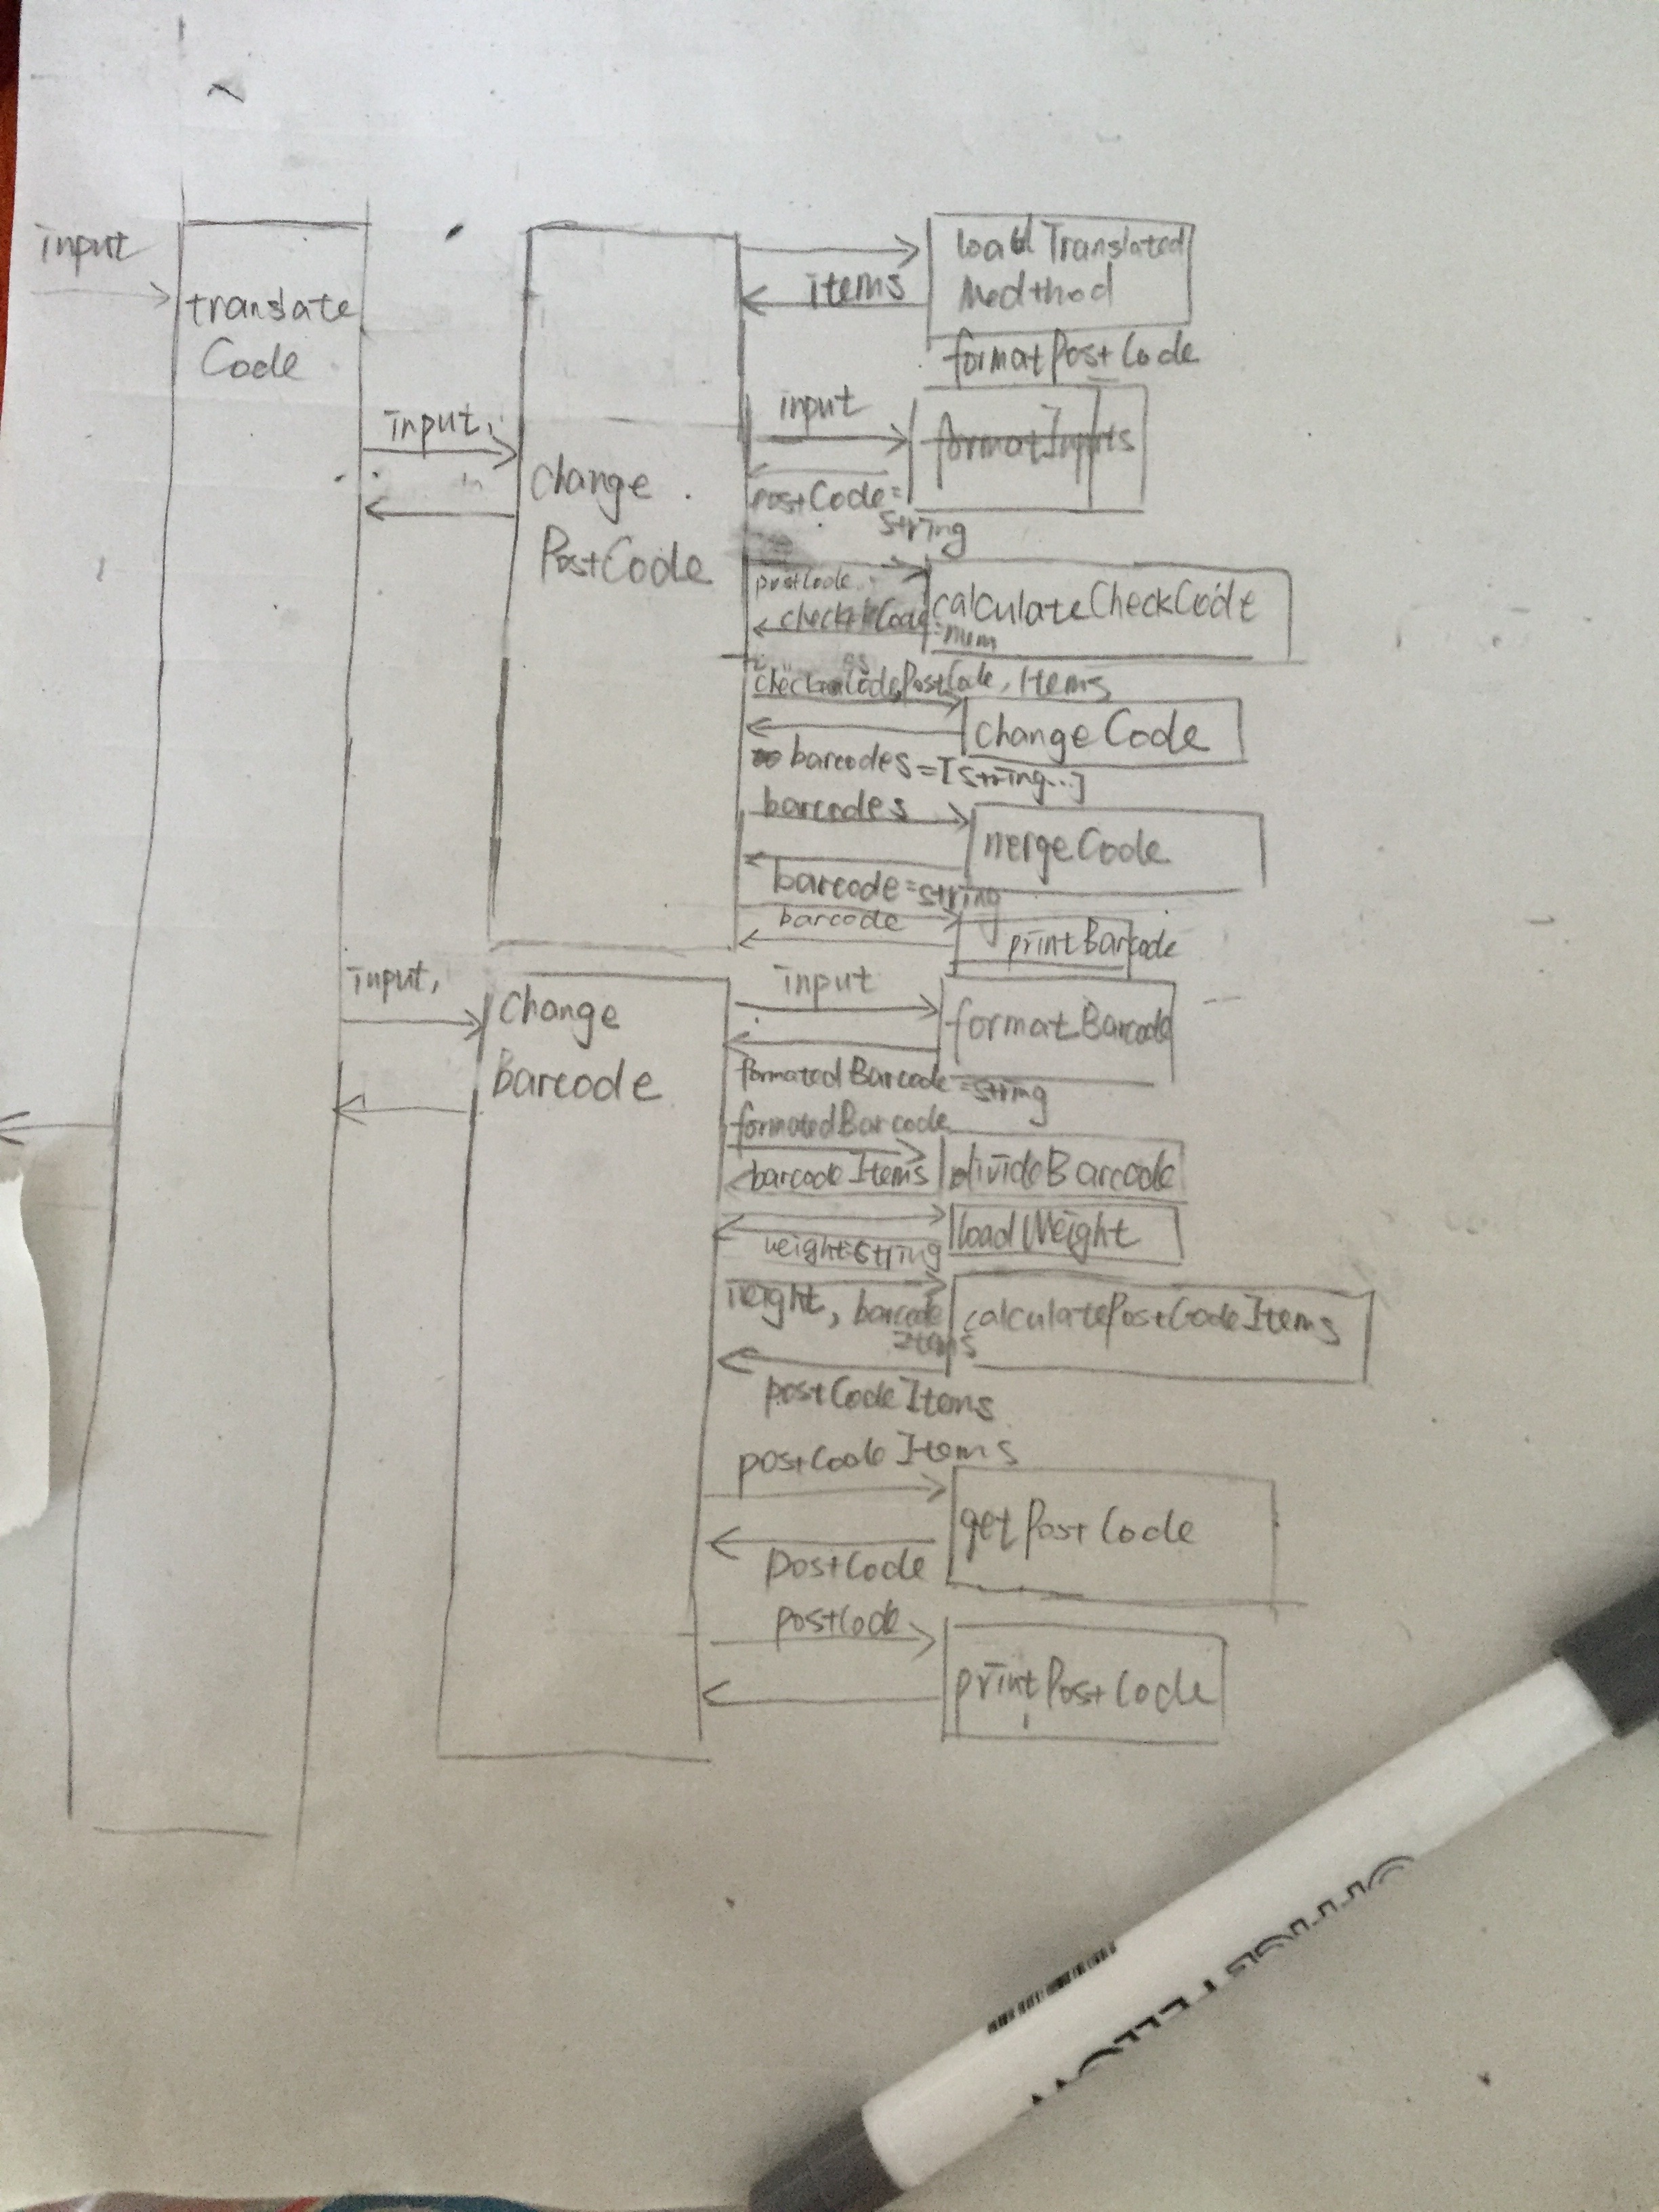 input
translate
Code
input,
change
PostCode
items
load Translated
Medthod
formatPostCode
input
formatInputs
postCode=
string
postCode
calculateCheckCode
PostCode, Items
changeCode
barcodes=[string...]
barcodes
mergeCode
barcode=string
barcode
printBarcode
input,
change
Barcode
input
formatBarcode
formatedBarcode=string
formatedBarcode
barcodeItems
divideBarcode
loadWeight
weight=string
weight, barcode
Items
calculatePostCodeItems
postCodeItems
postCodeItems
getPostCode
postCode
postCode
printPostCode